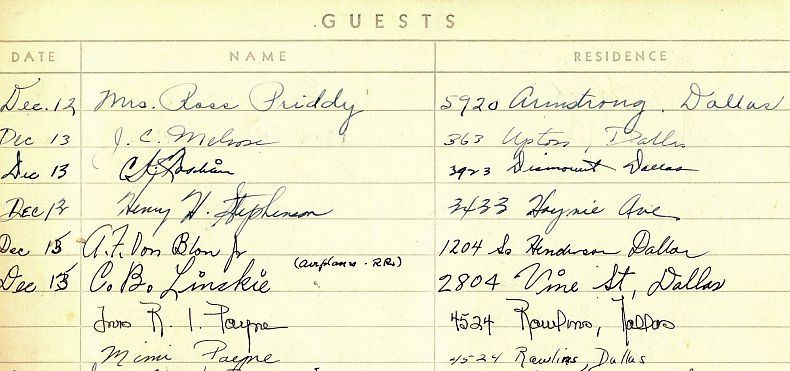 GUESTS
DATE NAME RESIDENCE
Dec. 12 Mrs. Ross Priddy 5920 Armstrong, Dallas
Dec 13 J. C. Melrose 363 Upton, Dallas
Dec 13 3923 Dismount Dallas
Dec 12 Henry H. Stephenson 3433 Haynie Ave
Dec 15 A. F. Von Blon Jr 1204 So Henderson Dallas
Dec 13 C. B. Linskie (airplans - RRs) 2804 Vine St, Dallas
R. I. Payne 4524 Rawlins, Dallas
Mimi Payne 4524 Rawlins, Dallas